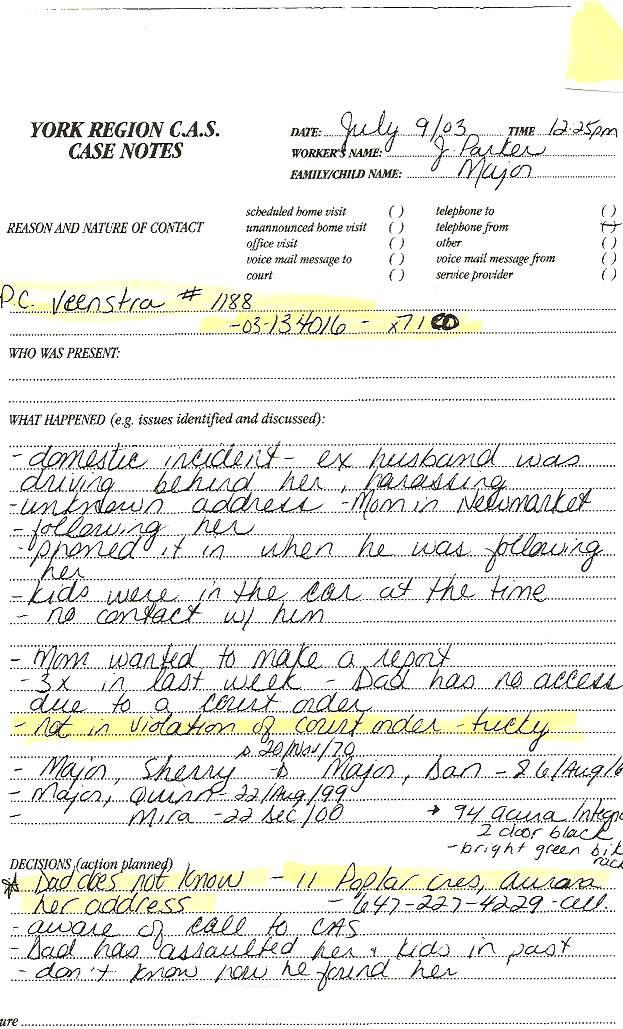 YORK REGION C.A.S.
CASE NOTES
DATE: July 9/03 TIME 12:25pm
WORKER'S NAME: J. Parker
FAMILY/CHILD NAME: Major
REASON AND NATURE OF CONTACT
scheduled home visit ( ) telephone to ( )
unannounced home visit ( ) telephone from ( )
office visit ( ) other ( )
voice mail message to ( ) voice mail message from ( )
court ( ) service provider ( )
P.C. Veenstra # 1188
-03-134016 - x71
WHO WAS PRESENT:
WHAT HAPPENED (e.g. issues identified and discussed):
- domestic incident - ex husband was
driving behind her, harassing
- unknown address - Mom in Newmarket
- following her
- phoned it in when he was following
her
- kids were in the car at the time
- no contact w/ him
- Mom wanted to make a report
- 3x in last week - Dad has no access
due to a court order
- not in violation of court order - tricky
20/Nov/70
- Major, Sherry Major, Dan - 26/Aug/6
- Major, Quinn - 22/Aug/99
- Mira - 22 Dec/00
→ 94 acura Integr
2 door black
- bright green bik
rack
DECISIONS (action planned)
* Dad does not know - 11 Poplar cres, aurora
her address - 647-227-4229 - cell.
- aware of call to CAS
- Dad has assaulted her & kids in past
- don't know how he found her
ure